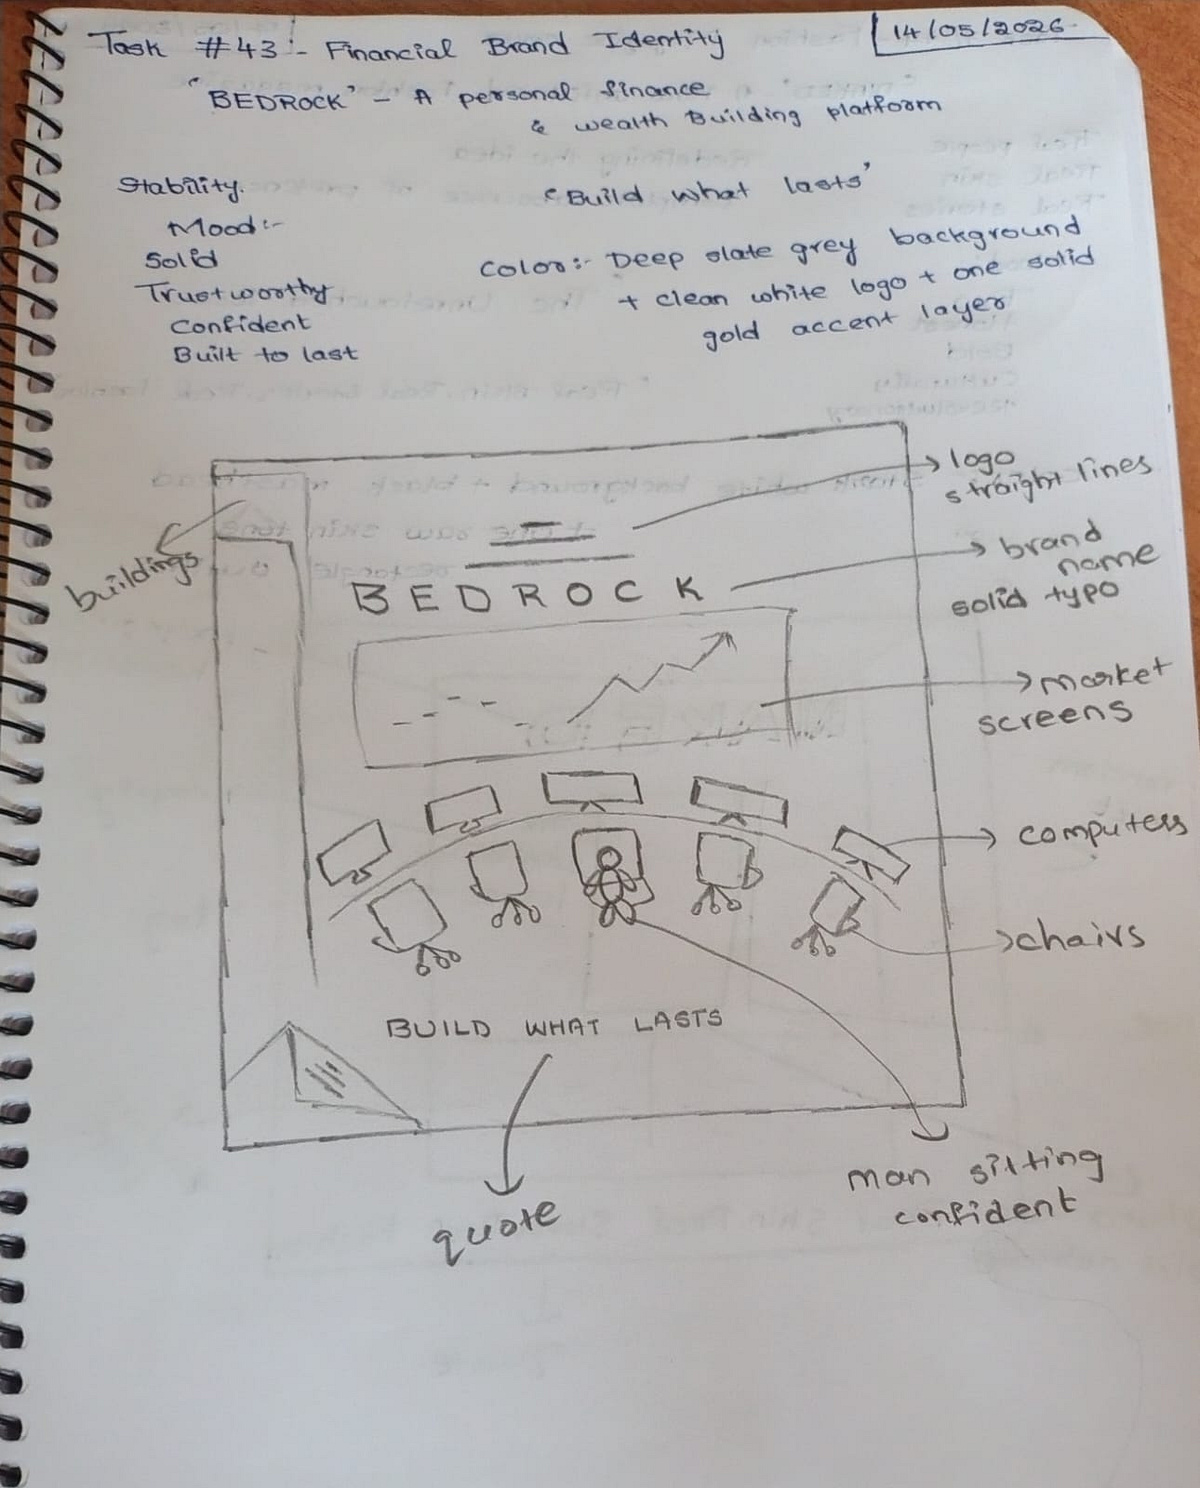 Task #43:- Financial Brand Identity
14/05/2026
"BEDROCK" - A personal finance
& wealth Building platform
Stability.
Mood:-
Solid
Trustworthy
Confident
Built to last
"Build what lasts"
Color:- Deep slate grey background
+ clean white logo + one solid
gold accent layer
logo
straight lines
buildings
BEDROCK
brand
name
solid typo
market
screens
computers
chairs
BUILD WHAT LASTS
quote
man sitting
confident